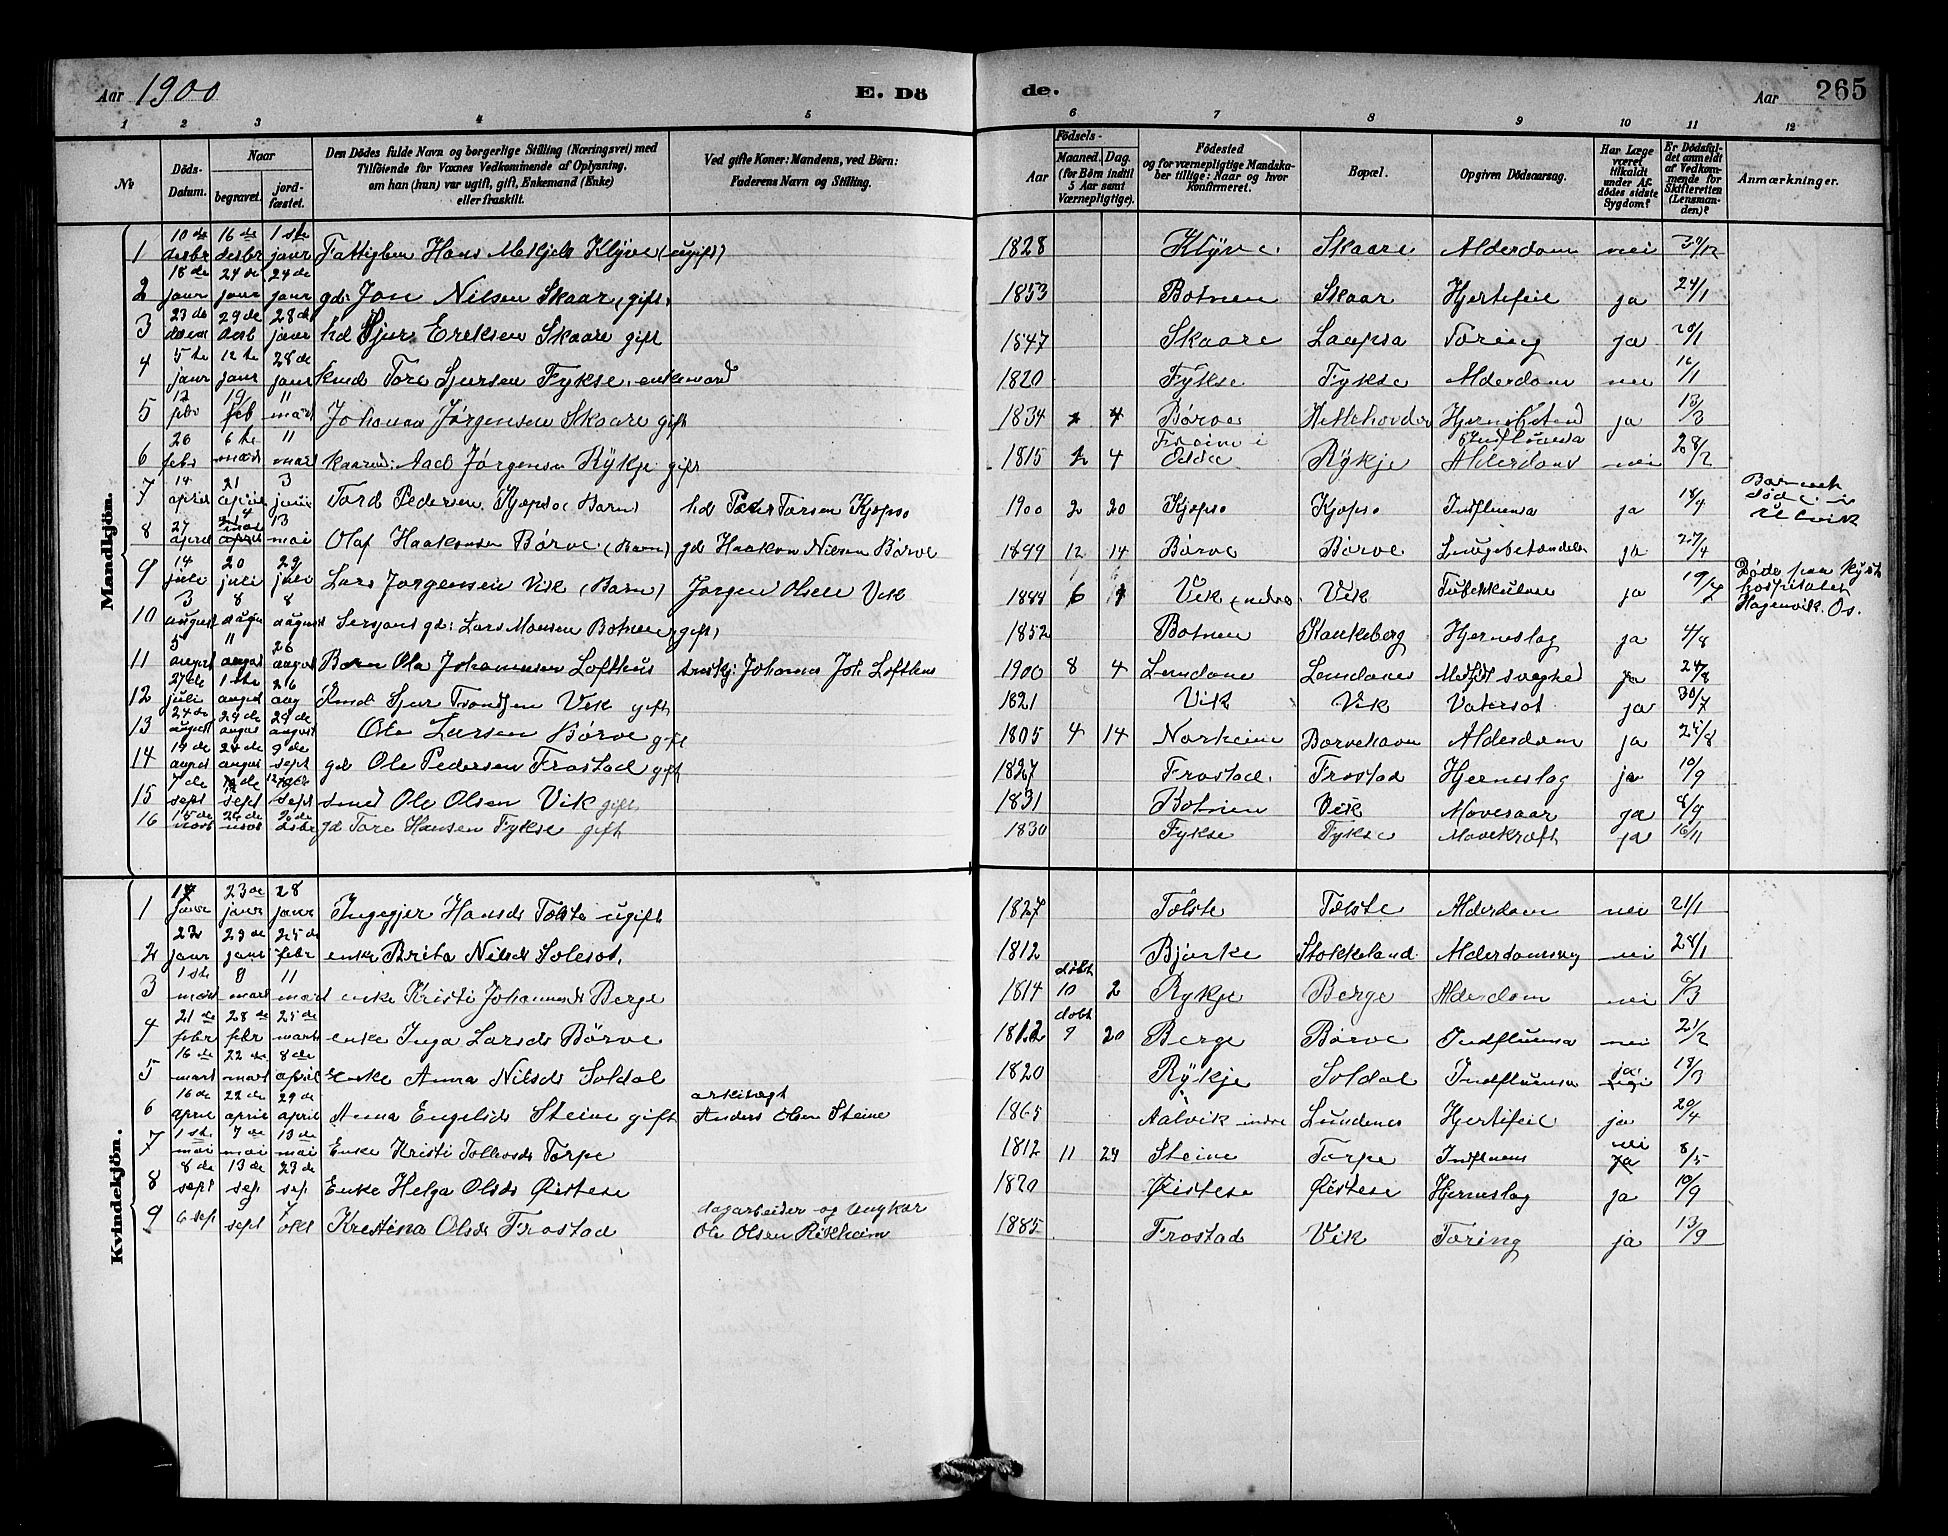 Aar 1900
E. Dö
de.
Aar
265
1 2 3 4 5 6 7 8 9 10 11 12
№
Döds-Datum.
Naar
begravet.
jord-fæstet.
Den Dödes fulde Navn og borgerlige Stilling (Næringsvei) med
Tilföiende for Voxnes Vedkommende af Oplysning,
om han (hun) var ugift, gift, Enkemand (Enke)
eller fraskilt.
Ved gifte Koner: Mandens, ved Börn:
Faderens Navn og Stilling.
Aar
Födsels-
Maaned. Dag.
(for Börn indtil
5 Aar samt
Værnepligtige).
Födested
og for værnepligtige Mandska-
ber tillige: Naar og hvor
Konfirmeret.
Bopæl.
Opgiven Dödsaarsag.
Har Læge
været
tilkaldt
under Af-
dödes sidste
Sygdom?
Er Dödsfal-
det anmeldt
af Vedkom-
mende for
Skifteretten
(Lensman-
den)?
Anmærkninger.
Mandkjön.
1 10de desbr 16de desbr 1ste janr Hans Klyve (ugift) 1828 Klyve Skaare Alderdom nei 30/12
2 18de janr 24de janr 24de janr gd: Jon Nilsen Skaar (gift) 1853 Botnen Skaar Hjertefeil ja 24/1
3 23de 29de 28de janr hd Sjur Eriksen Skaare gift 1847 Skaare Laupsa Tæring ja 20/1
4 5te janr 12te janr 28de janr Tore Sjursen Fykse, enkemand 1820 Fykse Fykse Alderdom nei 16/1
5 12 febr 19 feb 11 mars Johannes Jørgensen Skaare gift 1834 4 Børve ja 13/3
6 26 febr 6te mars 11 mars Aad Jørgensen Rykje gift 1815 2 4 Rykje Alderdom nei 28/2
7 14 april 21 april 3 juni Tord Pedersen Kjøpso (Barn) hd Peder Torsen Kjøpso 1900 2 20 Kjøpso Kjøpso Indfluensa ja 18/4 Barnet døde i Ulvik
8 27 april 4 mai 13 mai Olaf Haakonsen Børve (Barn) gd Haakon Nilsen Børve 1899 12 14 Børve Børve Lungebetændelse ja 27/4
9 14 juli 20 juli 29 juli Lars Jørgensen Vik (Barn) Jørgen Olsen Vik 6 Vik Vik Tuberkulose ja 19/7 Døde paa Kyst
hospitalet
Hagenvik. Os.
10 3 august 8 august 8 august Sersjant gd: Lars Monsen Botnen (gift) 1852 Botnen Haukeberg Hjerneslag ja 4/8
11 5 august 11 august 26 august Barn Ola Johannessen Lofthus Johannes Joh. Lofthus 1900 8 4 Lundane Lundanes Medfødt svaghed ja 24/8
12 27de juli 1ste august 26 aug Sjur Trondsen Vik gift 1821 Vik Vik Vatersot ja 30/7
13 24de august 29de august 29de august Ole Larsen Børve gift 1805 4 14 Norheim Børvehavn Alderdom ja 25/8
14 19de august 24de august 9de sept gd Ole Pedersen Frostad gift 1827 Frostad Frostad Hjerneslag ja 10/9
15 7de sept sept sept smed Ole Olsen Vik gift 1831 Botnen Vik Mavesaar ja 8/9
16 15de novb 24de novb desbr gd Tore Hansen Fykse gift 1830 Fykse Fykse Mavekræft ja 16/11
Kvindekjön.
1 17 janr 23de janr 28 janr Ingegjer Hansd Tolste ugift 1827 Tolste Tolste Alderdom nei 21/1
2 22 janr 29de janr 25de febr enke Brita Nilsd 1812 Bjørke Stokkeland Alderdomssvag nei 28/1
3 1ste mars 9 mars 11 mars enke Kristi Johannesd Berge 1814 døbt 10 2 Rykje Berge Alderdom nei 6/3
4 21de febr 28de febr 25de mars enke Inga Larsd Børve 1812 døbt 9 20 Berge Børve Indfluensa nei 21/2
5 16de mars 22de mars 8de april Enke Anna Nilsd Soldal 1820 Rykje Soldal Indfluensa ja 18/3
6 16de april 22de april 29de april Anna Engelsd Steine gift Anders Olsen Steine 1865 Aalvik indre Lundenes Hjertefeil ja 20/4
7 1ste mai 7de mai 13de mai Enke Kristi Torpe 1812 11 29 Steine Torpe Indfluens nei 8/5
8 8de sept 13de sept 23de sep Enke Helga Olsd Øistese 1820 Øistese Øistese Hjerneslag ja 10/9
9 6 sept 9 sept 7 okt Kristina Olsd Frostad dagarbeider og ungkar Ole Olsen Rikheim 1885 Frostad Vik Tæring ja 13/9